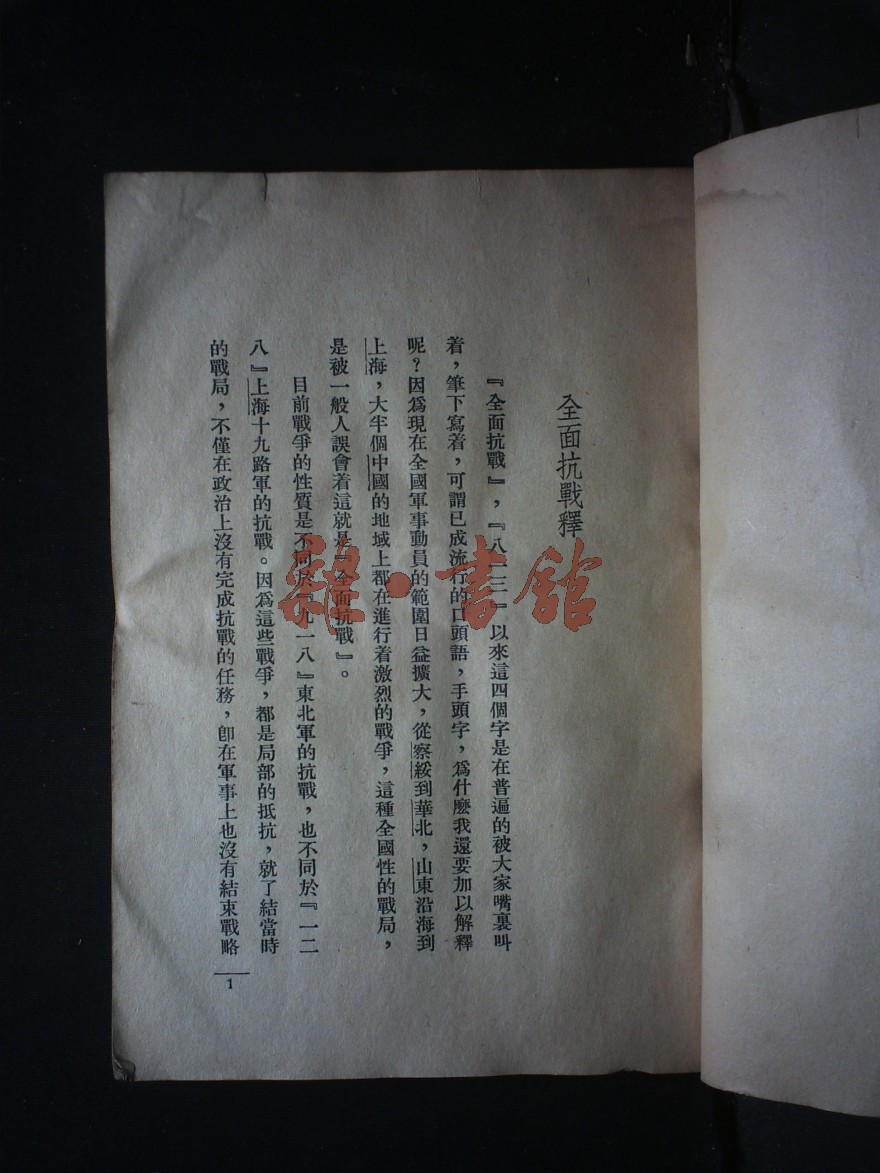 全面抗戰釋
『全面抗戰』，『八一三』以來這四個字是在普遍的被大家嘴裏叫
着，筆下寫着，可謂已成流行的口頭語，手頭字，爲什麽我還要加以解釋
呢？因爲現在全國軍事動員的範圍日益擴大，從察綏到華北，山東沿海到
上海，大半個中國的地域上都在進行着激烈的戰爭，這種全國性的戰局，
是被一般人誤會着這就是『全面抗戰』。
目前戰爭的性質是不同於『九一八』東北軍的抗戰，也不同於『一二
八』上海十九路軍的抗戰。因爲這些戰爭，都是局部的抵抗，就了結當時
的戰局，不僅在政治上沒有完成抗戰的任務，卽在軍事上也沒有結束戰略
1
雜·書館